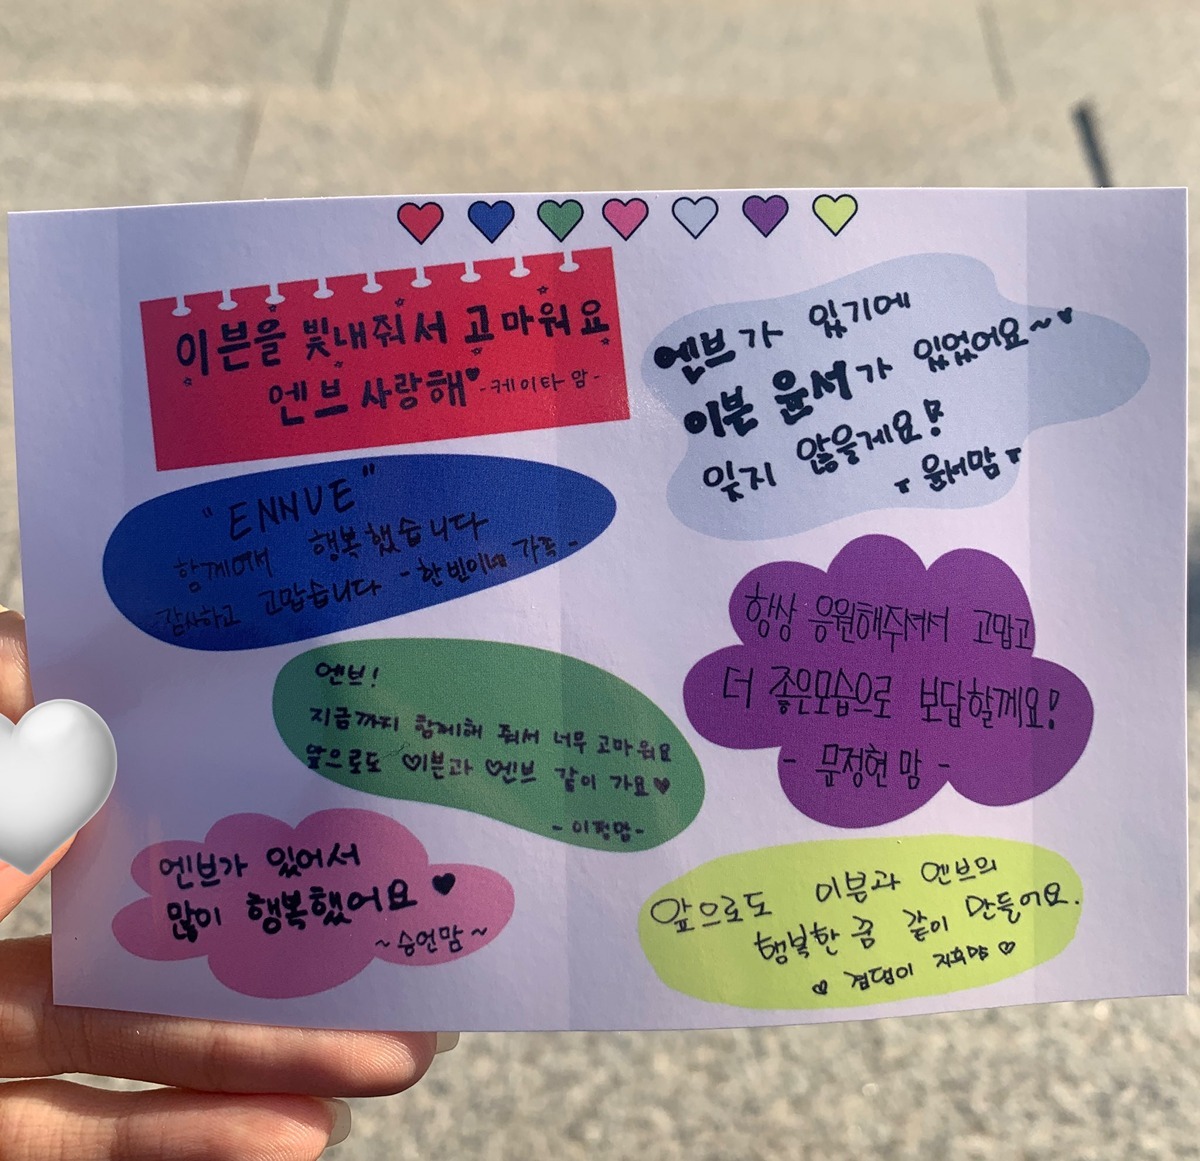 이븐을 빛내줘서 고마워요
엔브 사랑해♥ -케이타 맘-
엔브가 있기에
이븐 윤서가 있었어요~♥
잊지 않을게요!
윤서맘
"ENNVE"
함께여서 행복했습니다
감사하고 고맙습니다 -한빈이네 가족-
항상 응원해주셔서 고맙고
더 좋은모습으로 보답할께요!
- 문정현 맘 -
엔브!
지금까지 함께해 줘서 너무 고마워요
앞으로도 ♡이븐과 ♡엔브 같이 가요♥
-이정맘-
엔브가 있어서
많이 행복했어요 ♥
~승언맘~
앞으로도 이븐과 엔브의
행복한 꿈 같이 만들어요.
♡ 지후맘 ♡